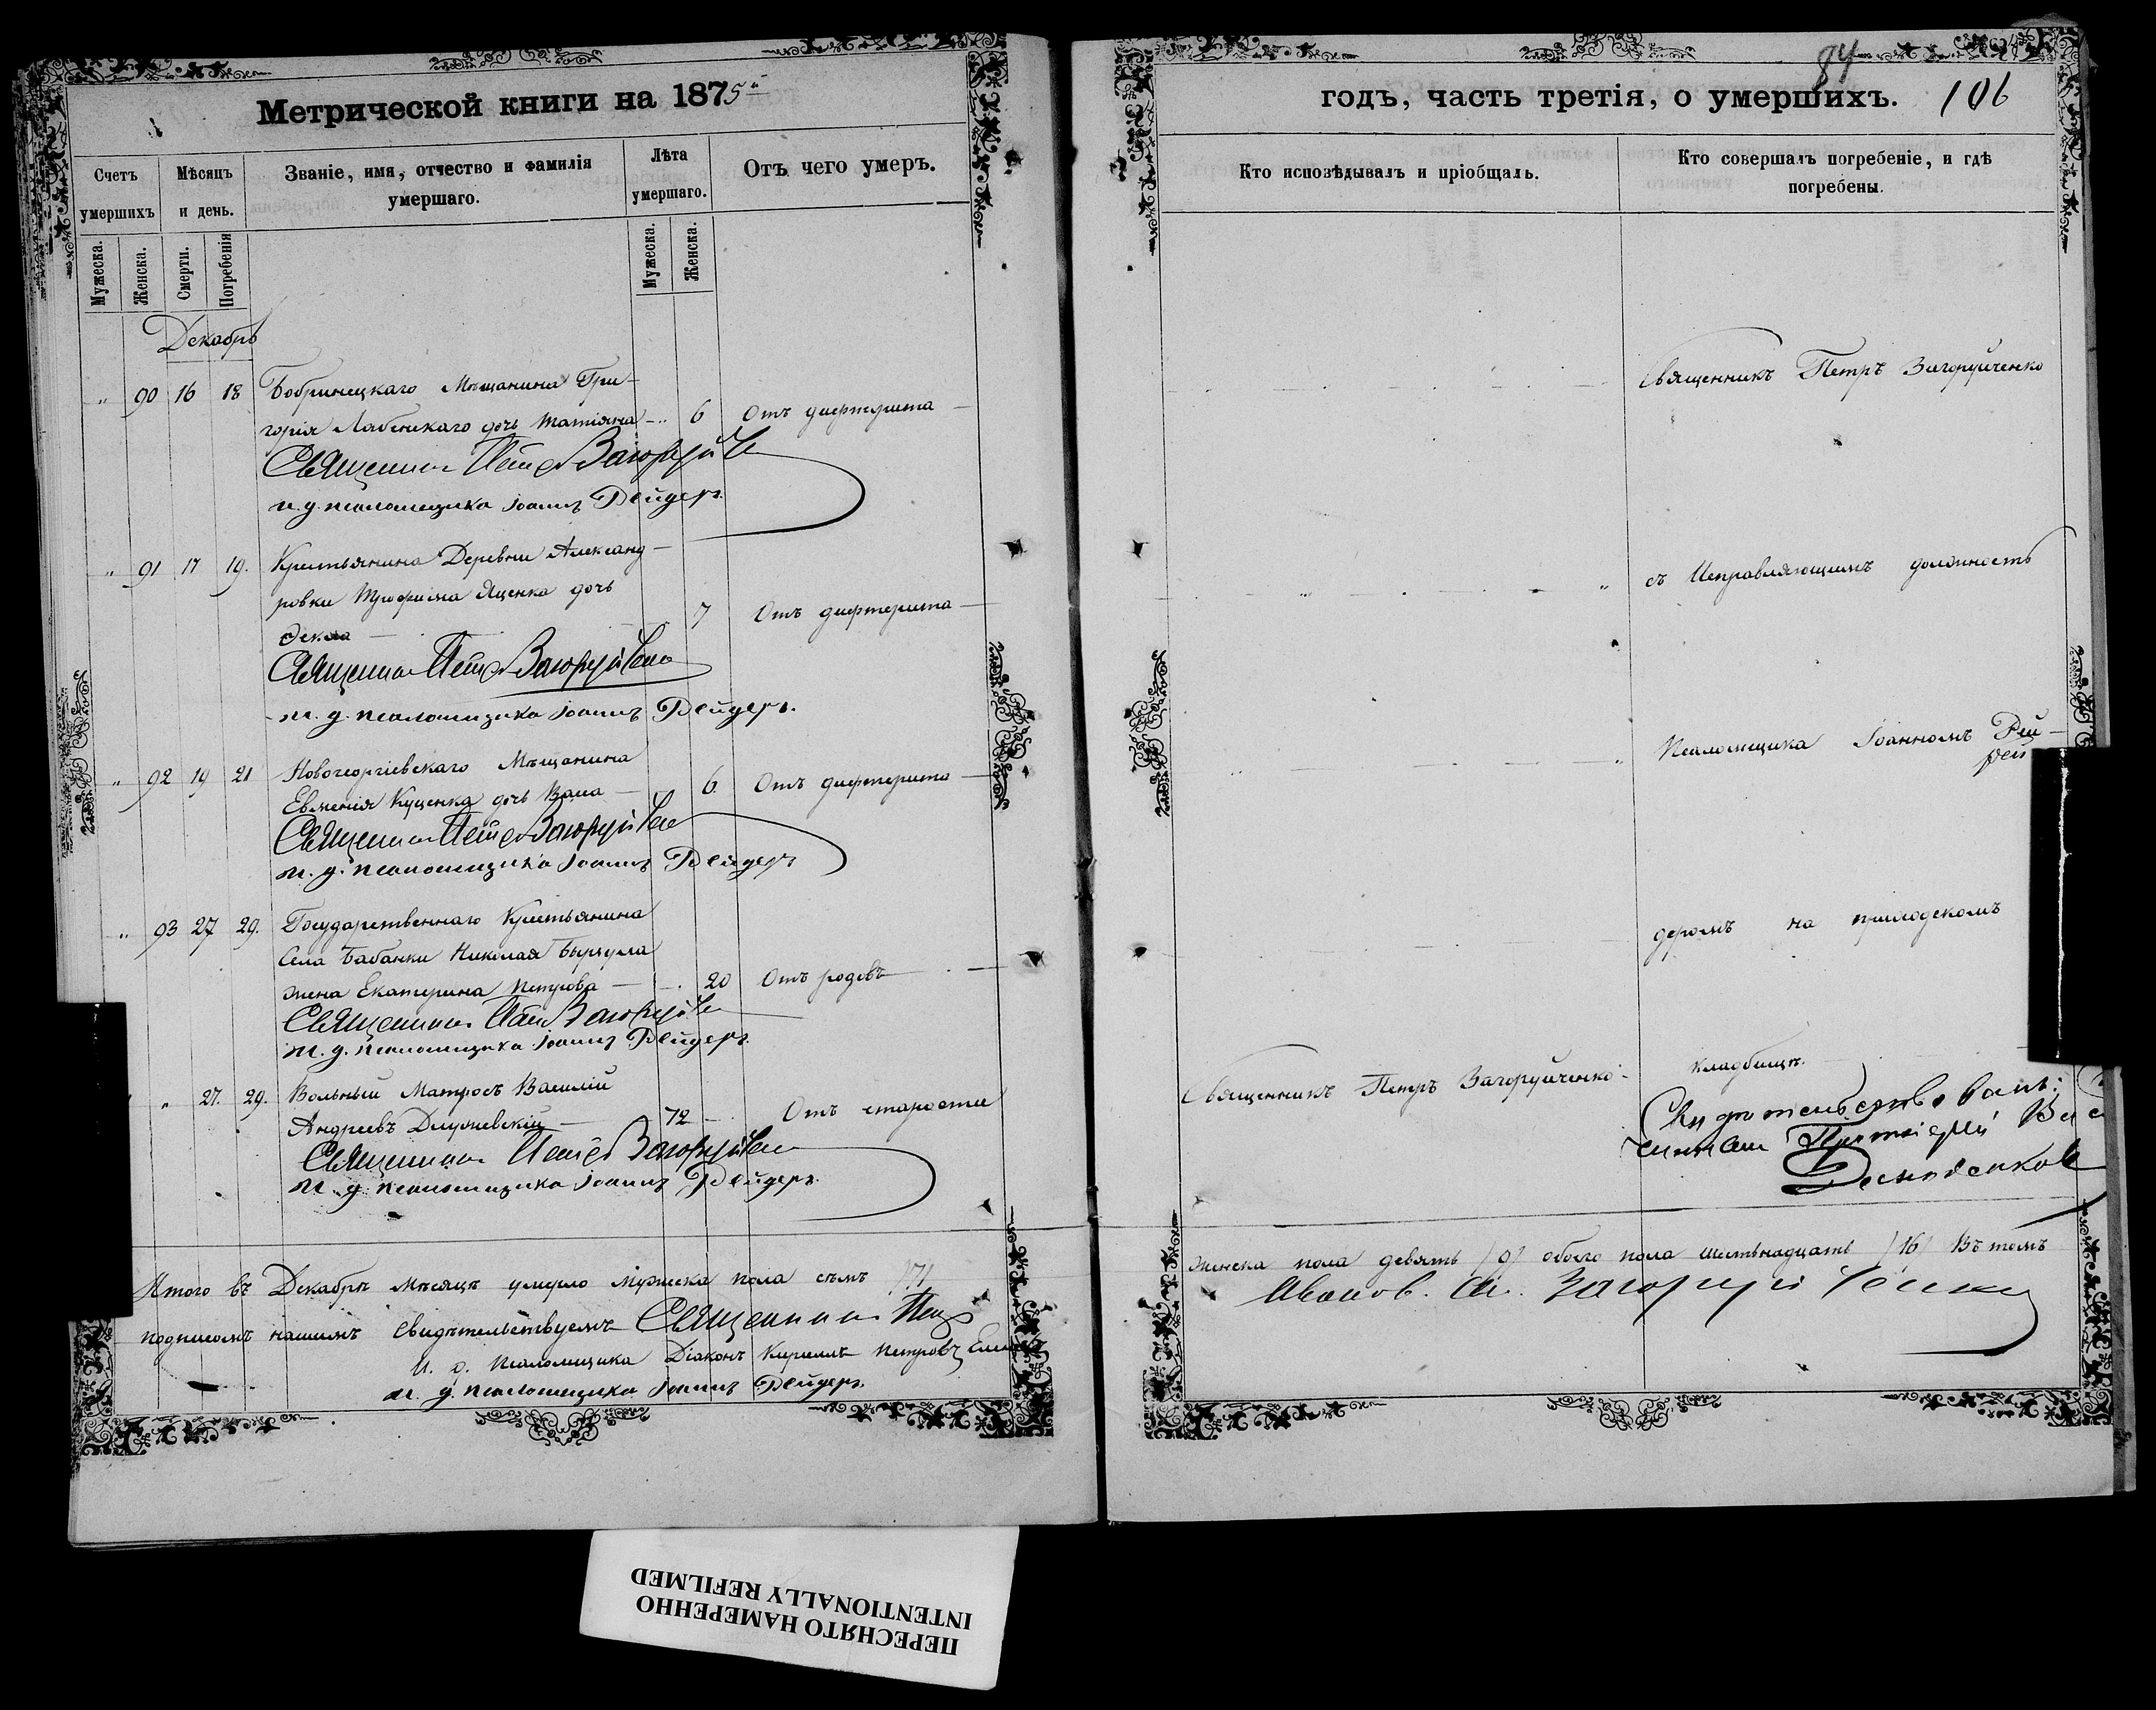 Метрической книги на 1875й
Счетъ умершихъ
Мѣсяцъ и день.
Званіе, имя, отчество и фамилія умершаго.
Лѣта умершаго.
Отъ чего умеръ.
Мужеска.
Женска.
Смерти.
Погребенія
Мужеска.
Женска.
Декабрь
„ 90 16 18 Бобринецкаго Мѣщанина Гри-
горія Лабенскаго дочь Татіяна 6 Отъ дифтерита
Священникъ Петръ Загоруйче
и. д. псаломщика Іоаннъ Рейдеръ.
„ 91 17 19. Крестьянина Деревни Александ-
ровки Трофима Яценка дочь
Фекла 7 Отъ дифтерита
Священникъ Петръ Загоруйченко
и. д. псаломщика Іоаннъ Рейдеръ.
„ 92 19 21 Новогеоргіевскаго Мѣщанина
Евменія Куценка дочь Васа 6 Отъ дифтерита
Священникъ Петръ Загоруйченко
и. д. псаломщика Іоаннъ Рейдеръ
„ 93 27 29. Государственнаго Крестьянина
Села Бабанки Николая
жена Екатерина Петрова 20 Отъ родовъ
Священникъ Петръ Загоруйче
и. д. псаломщика Іоаннъ Рейдеръ.
„ 27. 29. Вольный Матросъ Василій
Андреевъ 72 Отъ старости
Священникъ Петръ Загоруйченко
и. д. псаломщика Іоаннъ Рейдеръ.
Итого въ Декабрѣ Мѣсяцѣ умерло мужеска пола семь /7/
подписомъ нашимъ свидѣтельствуемъ Священникъ Петръ
И. д. Псаломщика Діаконъ Кириллъ Петровъ
и. д. псаломщика Іоаннъ Рейдеръ.
84
годъ, часть третія, о умершихъ. 106
Кто исповѣдывалъ и пріобщалъ.
Кто совершалъ погребеніе, и гдѣ погребены.
Священникъ Петръ Загоруйченко
съ Исправляющимъ должность
Псаломщика Іоанномъ Рей-
рей
деромъ на приходскомъ
Священникъ Петръ Загоруйченко
кладбищѣ.
Свидѣтельствовалъ:
Протоіерей
женска пола девять /9/ обоего пола шестьнадцать /16/ Въ томъ
Загоруйченко
ПЕРЕСНЯТО НАМЕРЕННО
INTENTIONALLY REFILMED